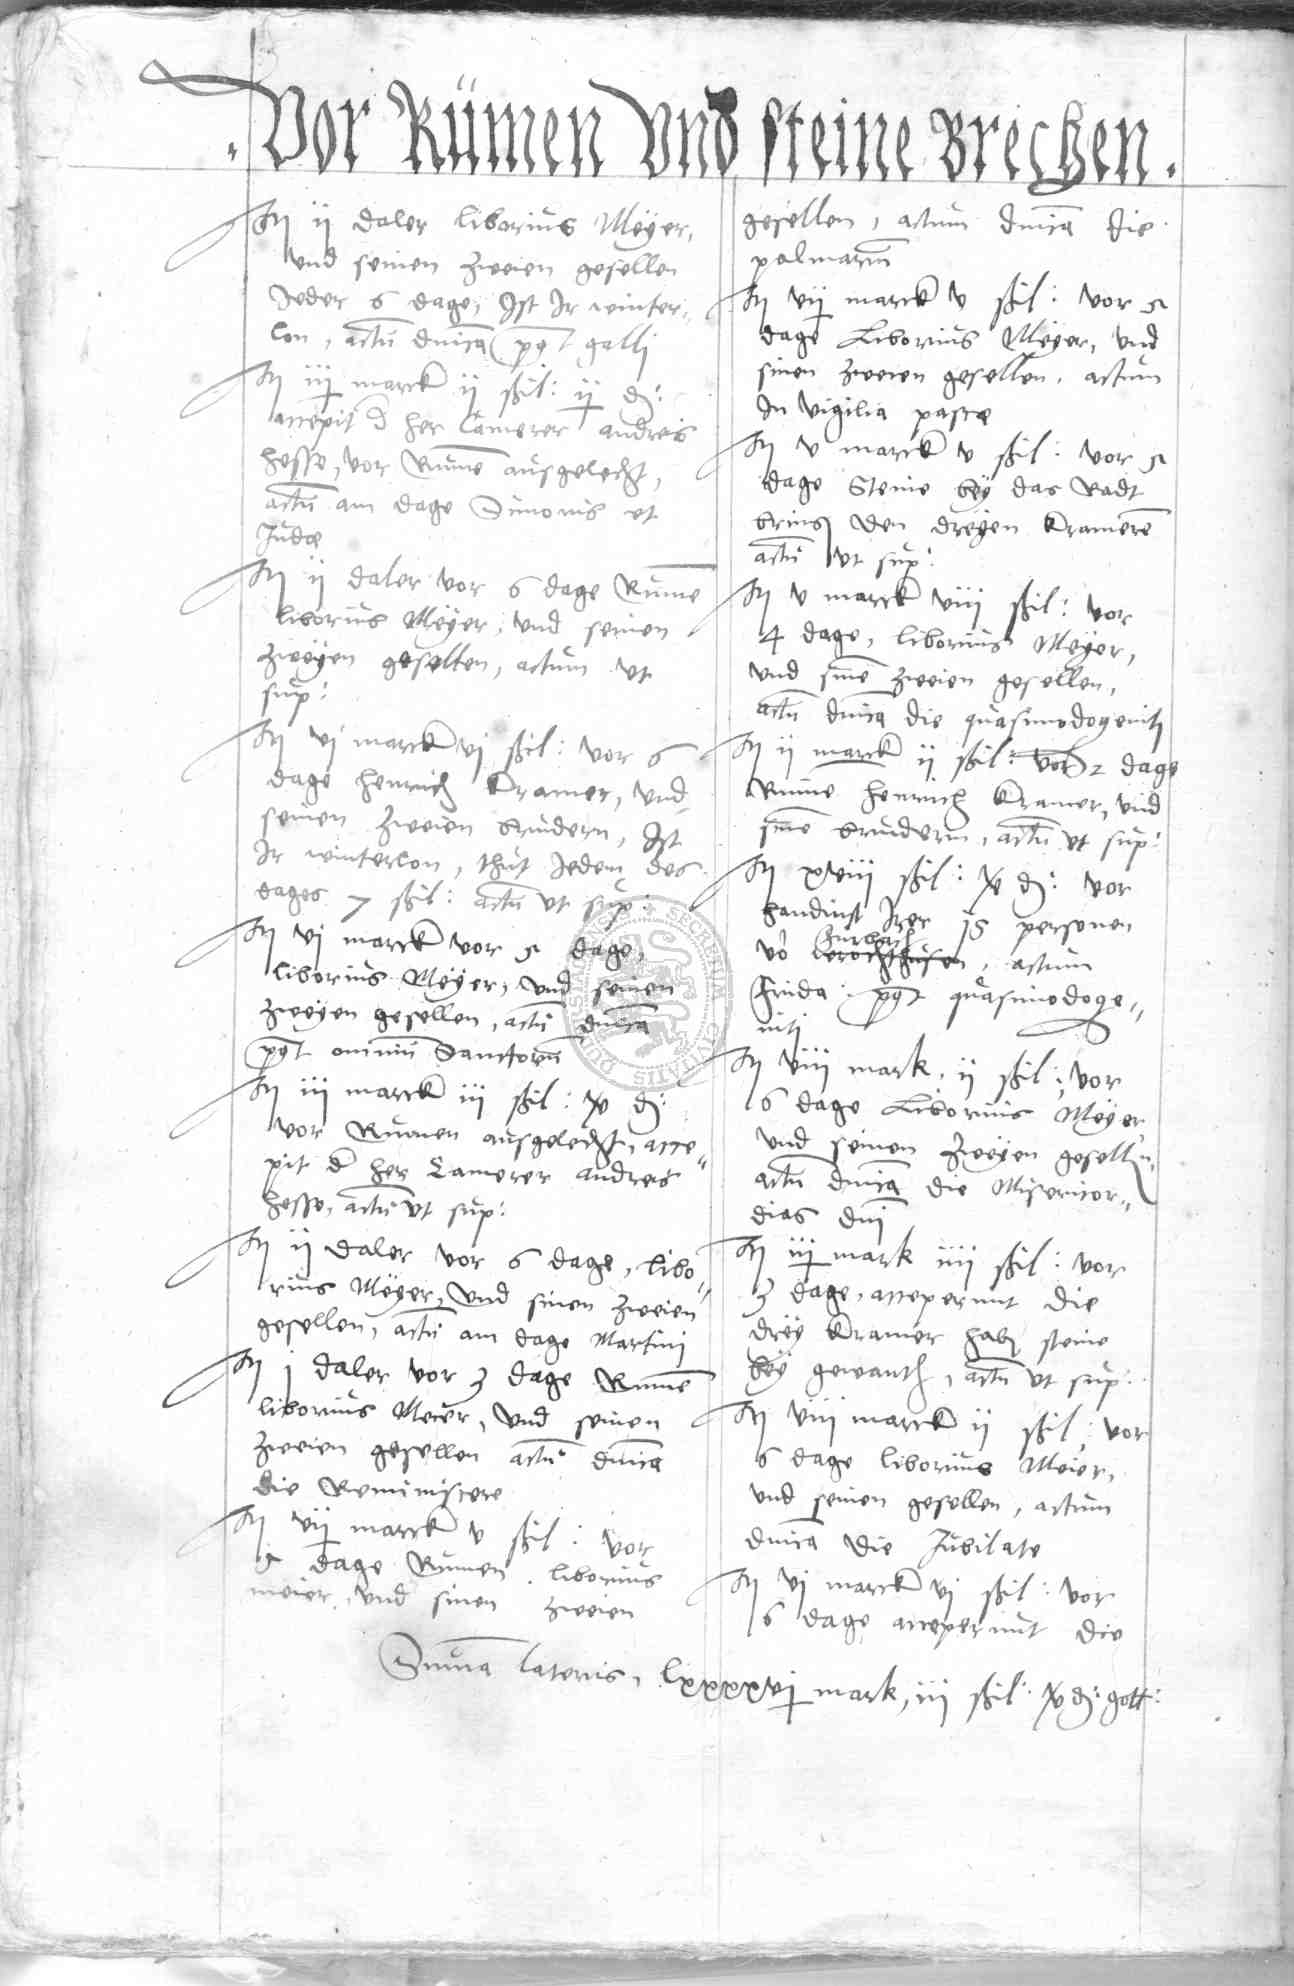 Vor Rümen Vnd steine Brechen.
Itē ij daler liborius Meÿer,
vnd seinen zweien gesellen
Jeder 6 dage, Ist Ir winter¬
lon, actū dnīca post galli
Itē iij marck ij ßil: ij d:
accepit d her Camerer andreis
hesse, vor Rumē ausgelecht,
actū am dage Simonis et
Judæ
Itē ij daler vor 6 dage Rumē
liborius Meÿer, vnd seinen
zweÿen gesellen, actum vt
sup:
Itē vj marck vj ßil: vor 6
dage henrich Kramer, vnd
seinen zweien brudern, Ist
Ir winterlon, thut Jedem des
dages 7 ßil: actū vt sup:
Itē vj marck vor 5 dage,
liborius Meÿer, vnd seinen
zweÿen gesellen, actū dnīca
post omniū Sanctorū
Itē iij marck iij ßil: d:
vor Rumen ausgelecht, acce¬
pit d her Camerer andreis
hesse, actū vt sup:
Itē ij daler vor 6 dage, libo¬
rius Meÿer, vnd sinen zweien
gesellen, actū am dage Martini
Itē j daler vor 3 dage Rumē
liborius Meier, vnd seinen
zweien gesellen actū dnīca
die Reminiscere
Itē vij marck v ßil: vor
5 dage Rumen liborius
meier, vnd sinen zweien
gesellen, actum dnīca die
palmarū
Itē vij marck v ßil: vor 5
dage Liborius Meÿer, vnd
sinen zweien gesellen, actum
In vigilia pascæ
Itē v marck v ßil: vor 5
dage Steine beÿ das Radt
den dreÿen Kramerē
actū vt sup:
Itē v marck viij ßil: vor
4 dage, liborius Meÿer,
vnd sinē zweien gesellen,
actū dnīca die quasimodogeniti
Itē ij marck ij ßil: vor 2 dage
Rumē henrich Kramer, vnd
sinē brudern, actū vt sup:
Itē xviij ßil: d: vor
handinst Irer 15 personen
vō, actum
frida: post quasimodoge¬
niti
Itē viij mark, ij ßil: vor
6 dage Liborius Meÿer
vnd seinen zweÿen gesellen,
actū dnīca die Misericor¬
dias dnī
Itē iij mark iiij ßil: vor
3 dage, acceperunt die
dreÿ Kramer habē steine
beÿ gewanth, actū vt sup:
Itē viij marck ij ßil: vor
6 dage liborius Meier,
vnd seinen gesellen, actum
dnīca die Jubilate
Itē vj marck vj ßil: vor
6 dage acceperunt die
Suma lateris, lxxxxvj mark, iij ßil: d: gott:
SECRETUM CIVITATIS